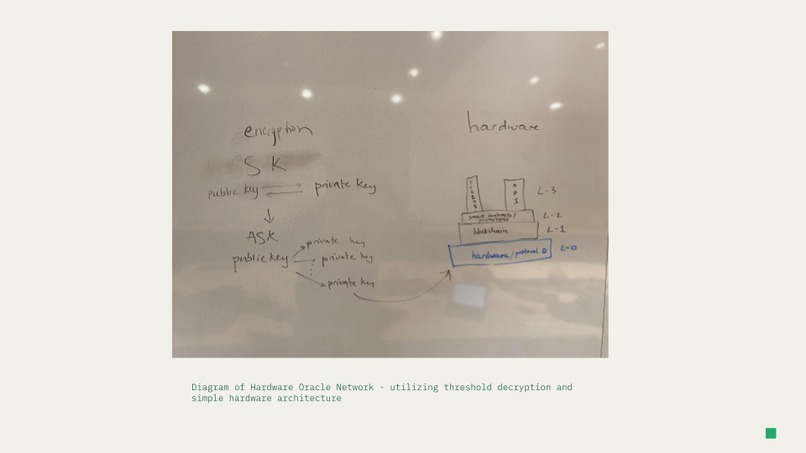 encryption
SK
public key
private key
ASK
public key
private key
private key
private key
hardware
API
L-3
smart contracts/
L-2
blockchain
L-1
hardware/protocol 0
L-0
Diagram of Hardware Oracle Network - utilizing threshold decryption and
simple hardware architecture